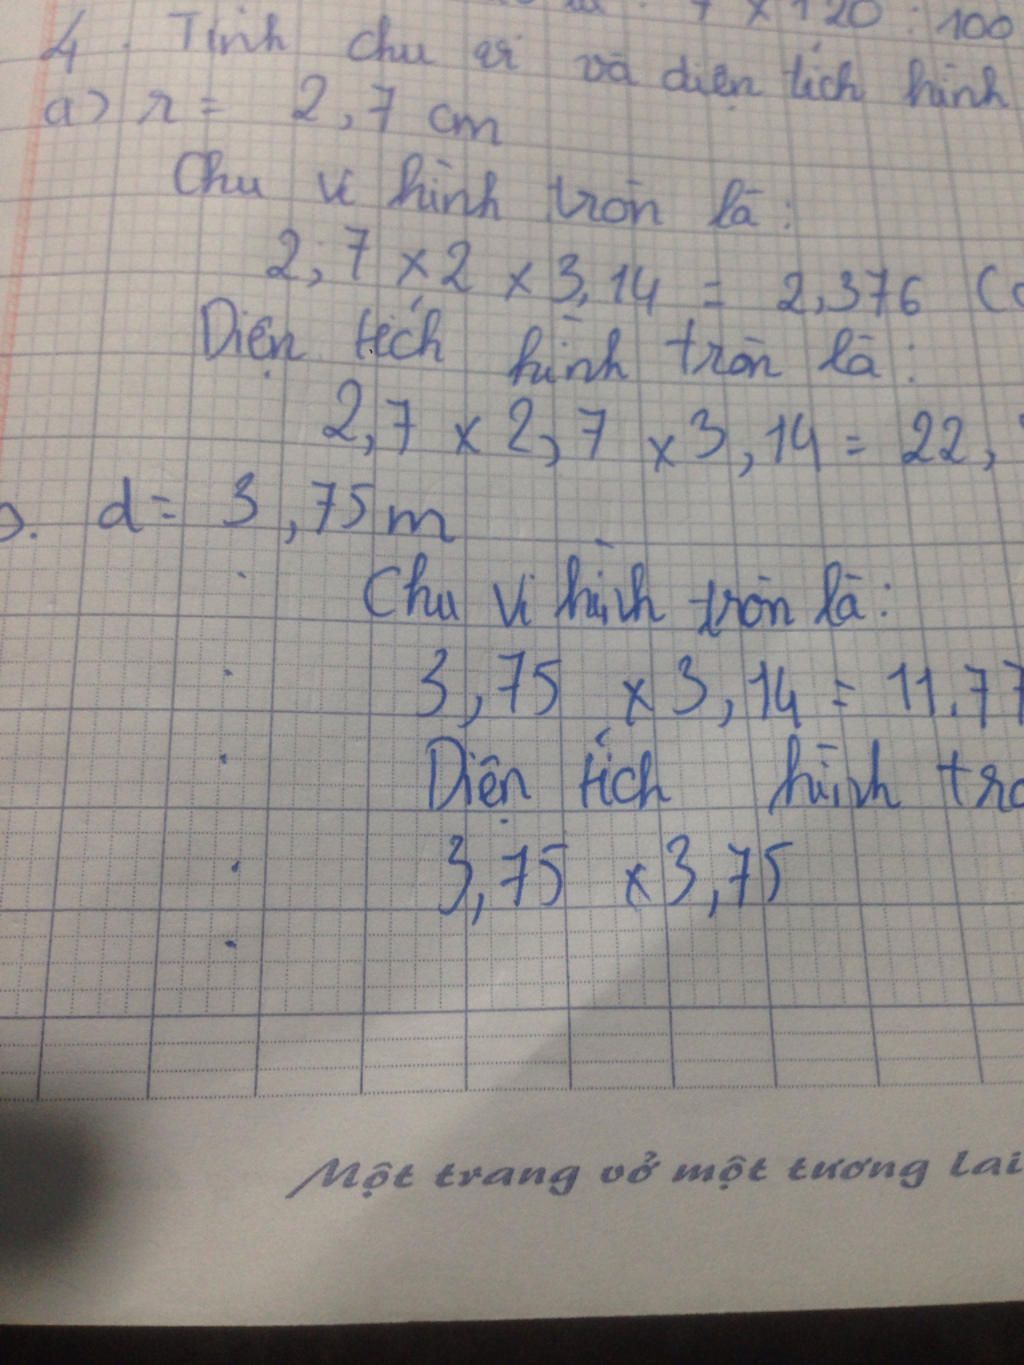 7 x 120 : 100
4. Tính chu vi và diện tích hình
a) r = 2,7 cm
Chu vi hình tròn là:
2,7 x 2 x 3,14 = 2,376 (c
Diện tích hình tròn là:
2,7 x 2,7 x 3,14 = 22,
d = 3,75 m
Chu vi hình tròn là:
3,75 x 3,14 = 11.77
Diện tích hình trò
3,75 x 3,75
Một trang vở một tương lai